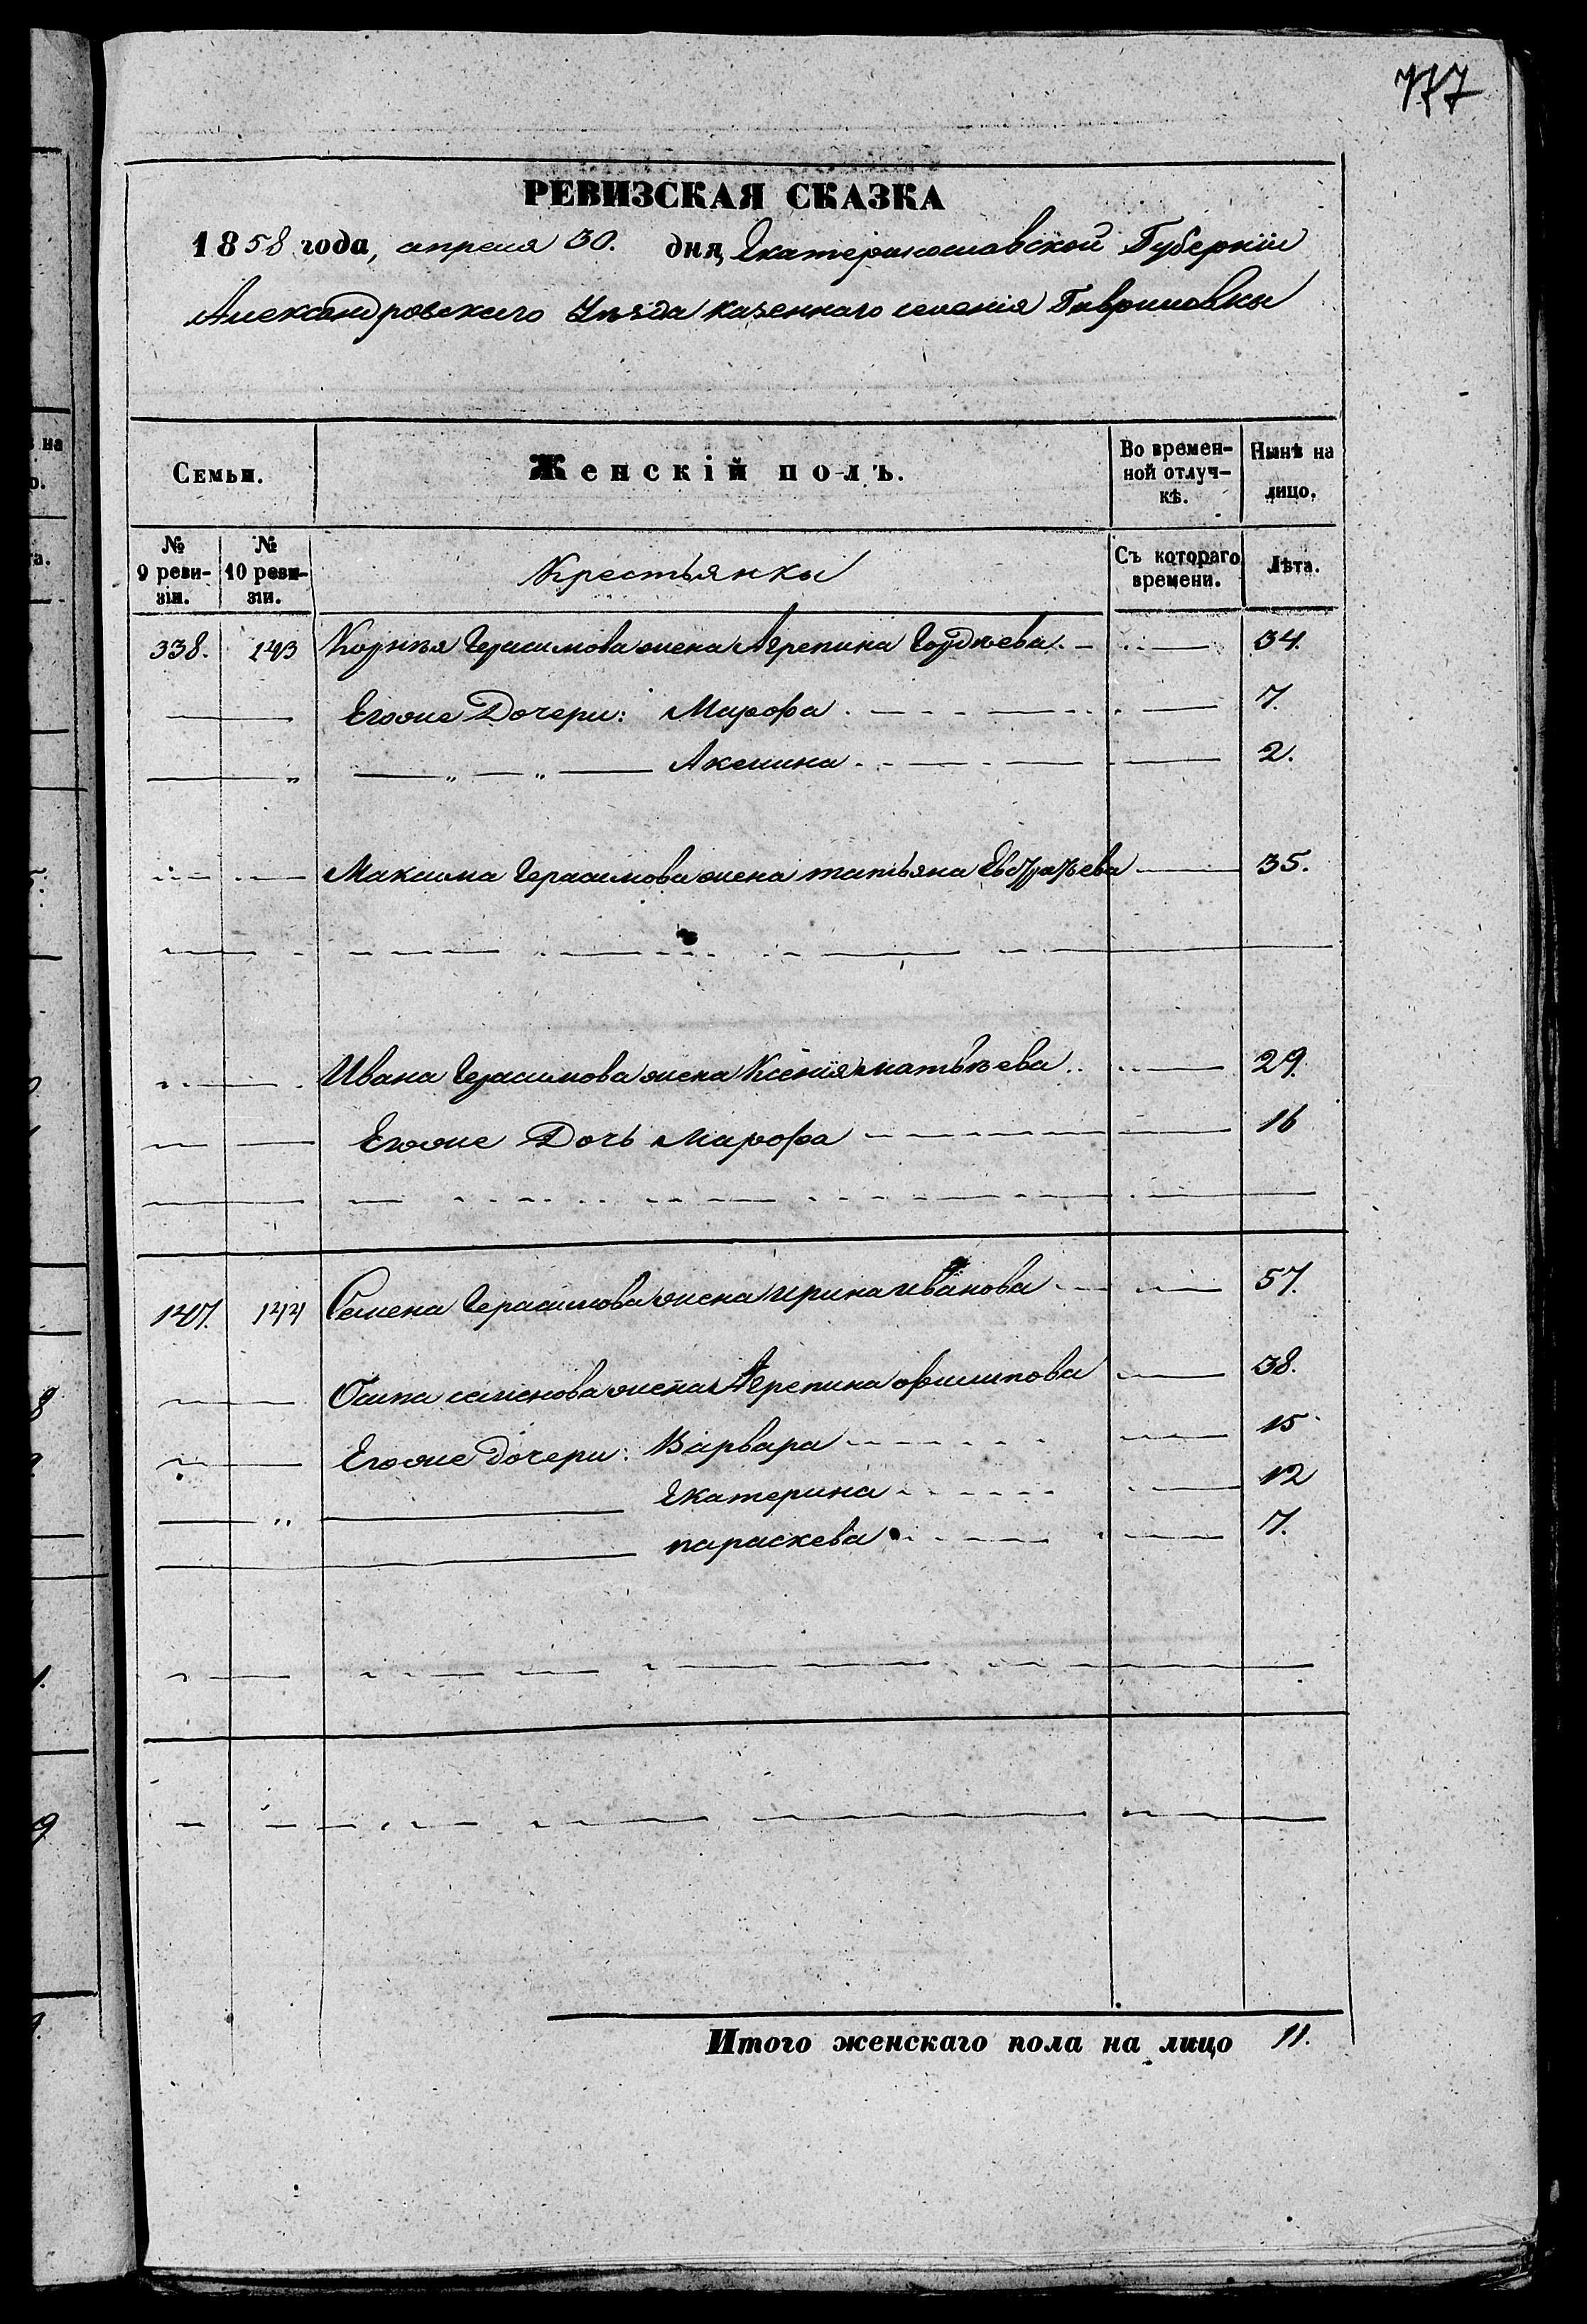 777
РЕВИЗСКАЯ СКАЗКА
1858 года, апреля 30. дня, Екатеринославской Губерніи
Александровскаго Уѣзда казеннаго селенія Гавриловки
Семьи. Женскій полъ. Во времен-ной отлуч-кѣ. Нынѣ на лицо.
№ 9 реви-зіи. № 10 реви-зіи. Крестьянки Съ котораго времени. Лѣта.
338. 143 Корнѣя Герасимова жена Агрепина Гордѣева 34.
Егоже Дочери: Марфа 7.
Акилина 2.
Максима Герасимова жена татьяна 35.
Ивана Герасимова жена Ксенія матвѣева 29.
Егоже Дочь Марфа 16
147. 144 Семена Герасимова жена ирина иванова 57.
Осипа семенова жена Агрепина филипова 38.
Егоже дочери: Варвара 15
Екатерина 12
параскева 7.
Итого женскаго пола на лицо 11.